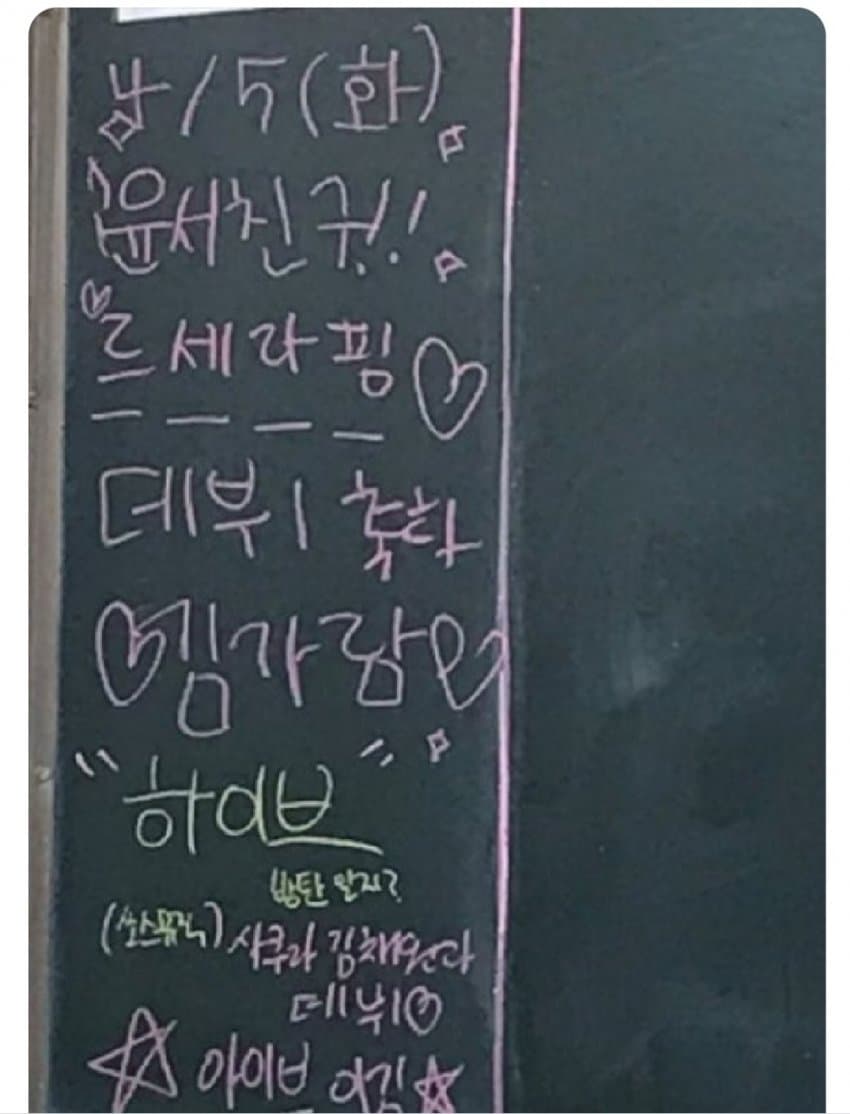 4/5(화)
윤서친귓!
르세라핌
데뷔 축하
김가람
"하이브"
방탄 알지?
(쏘스뮤직) 사쿠라 김채원과
데뷔
아이브 이김